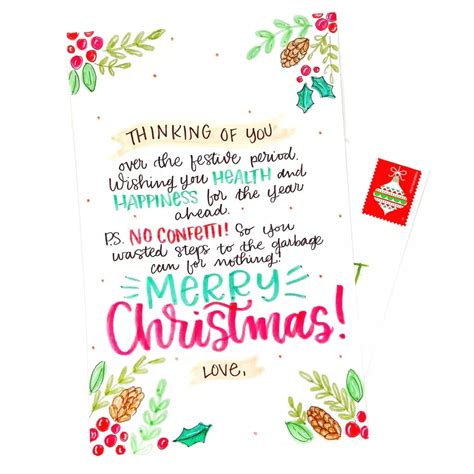 THINKING OF YOU
over the festive period.
Wishing you HEALTH and
HAPPINESS for the year
ahead.
P.S. NO CONFETTI! So you
wasted steps to the garbage
can for nothing.
MERRY
Christmas!
LOVE,